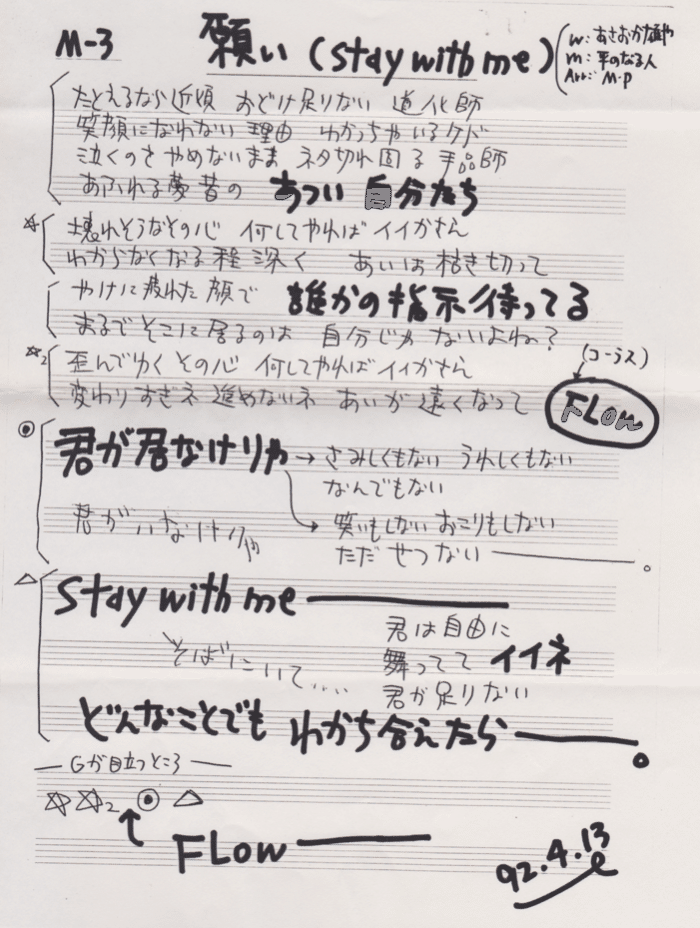 M-3 願い (stay with me)
w: あさおか雄や
m: 平のなる人
Arr: M.P
たとえるなら近頃 おどけ足りない 道化師
笑顔になれない 理由 わかっちゃいるケド
泣くのさ やめないまま ネタ切れ困る 手品師
あふれる夢昔の あつい 自分たち
☆ 壊れそうなその心 何してやれば イイかさえ
わからなくなる程 深く あいは 枯き切って
やけに疲れた 顔で 誰かの指示待ってる
まるで そこに居るのは 自分じゃ ないよね?
☆2 歪んでゆく その心 何してやれば イイかさえ
変わりすぎネ 進めないネ あいが 遠くなって
(コーラス)
FLow
◉ 君が君なけりゃ → さみしくもない うれしくもない
なんでもない
君がいなけりゃ → 笑いもしない おこりもしない
ただ せつない ― 。
△ stay with me ―
そばにいて....
君は自由に
舞ってて イイネ
君が足りない
どんなことでも わかち合えたら ― 。
― Gが目立つところ ―
☆ ☆2 ◉ △
FLow ―
92.4.13